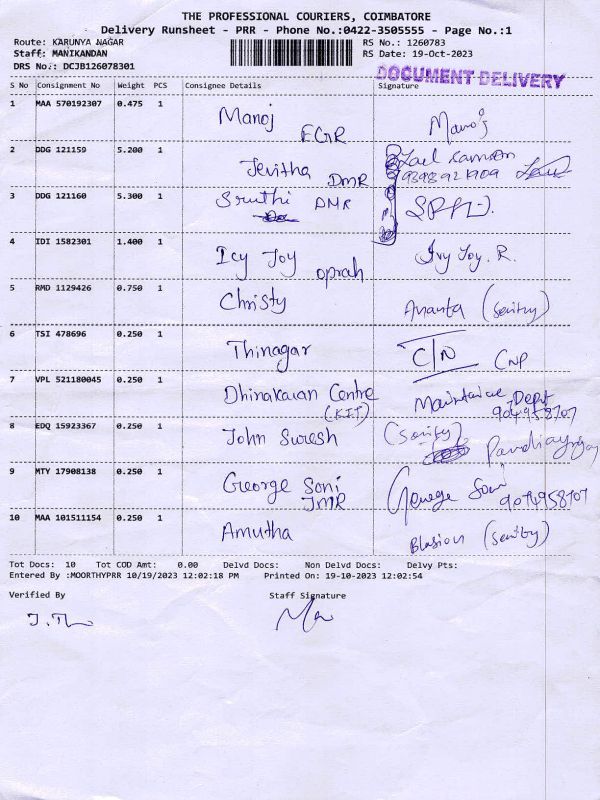 THE PROFESSIONAL COURIERS, COIMBATORE
Delivery Runsheet - PRR - Phone No.:0422-3505555 - Page No.:1
Route: KARUNYA NAGAR RS No.: 1260783
Staff: MANIKANDAN RS Date: 19-Oct-2023
DRS No.: DCJB126078301
DOCUMENT DELIVERY
S No Consignment No Weight PCS Consignee Details Signature
1 MAA 570192307 0.475 1 Manoj FGR Manoj
2 DDG 121159 5.200 1 Jevitha DMR Zael Samson
9398921909
3 DDG 121160 5.300 1 Sruthi DMR
4 IDI 1582301 1.400 1 Icy Joy oprah Ivy Joy. R.
5 RMD 1129426 0.750 1 Christy Ananta (Sentry)
6 TSI 478696 0.250 1 Thinagar C/N CNP
7 VPL 521180045 0.250 1 Dhinakaran Centre
(KIT) Dept
8 EDQ 15923367 0.250 1 John Suresh (Sentry)
9 MTY 17908138 0.250 1 George Soni
JMR George Soni
10 MAA 101511154 0.250 1 Amutha (Sentry)
Tot Docs: 10 Tot COD Amt: 0.00 Delvd Docs: Non Delvd Docs: Delvy Pts:
Entered By :MOORTHYPRR 10/19/2023 12:02:18 PM Printed On: 19-10-2023 12:02:54
Verified By Staff Signature